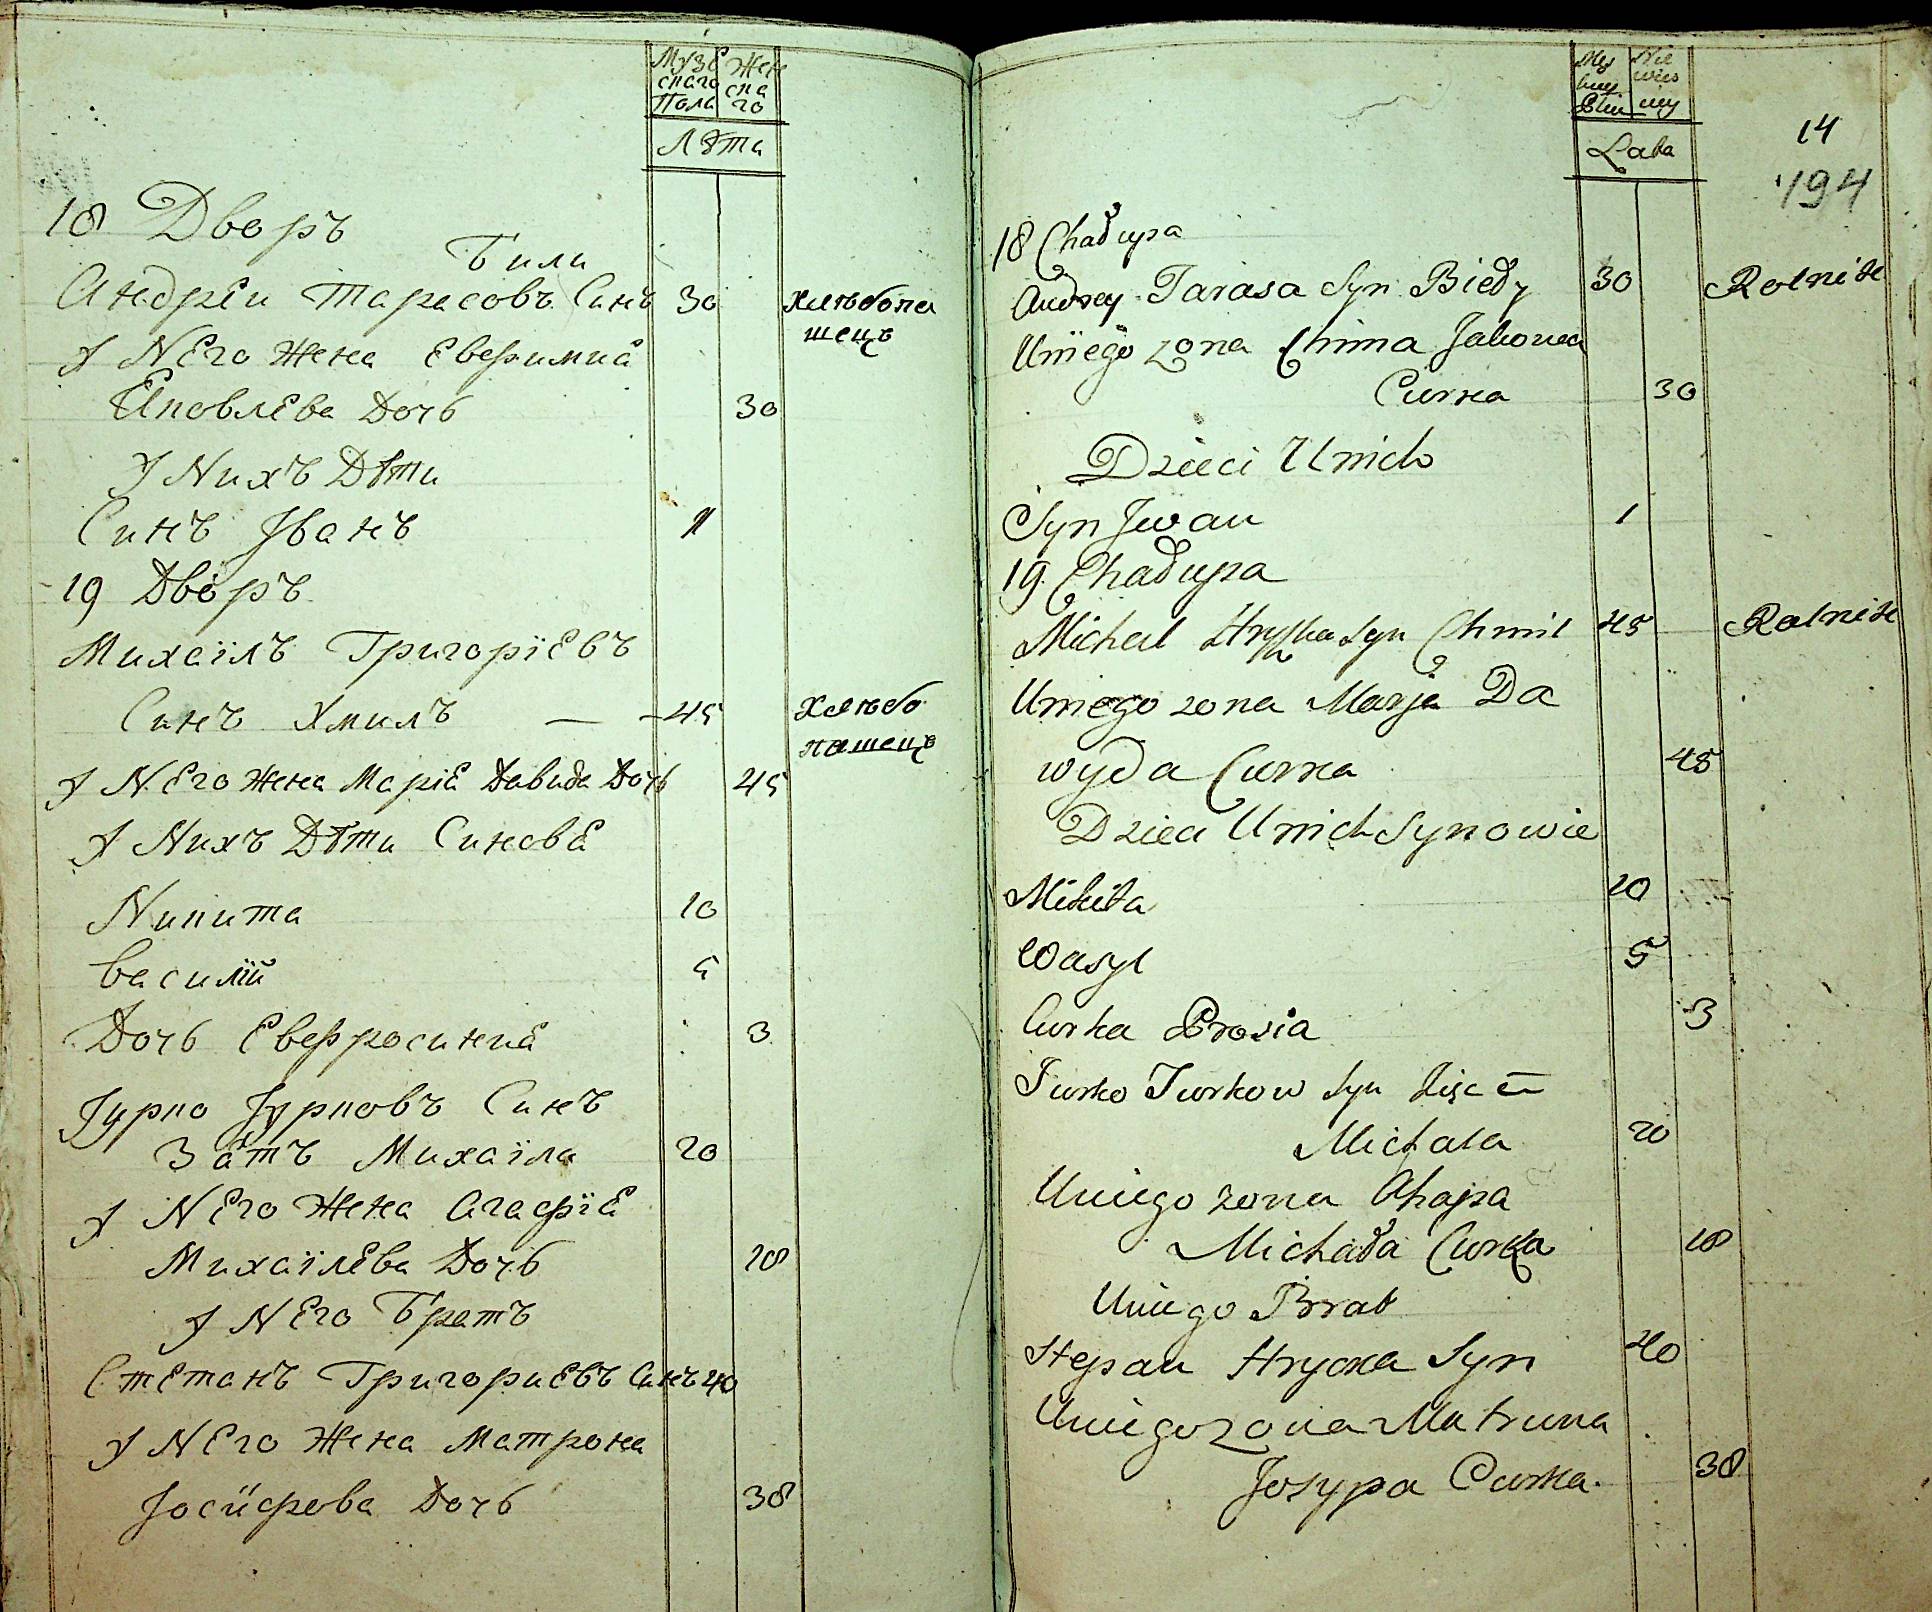 Музе Жен
скаго ска
Пола го
Лѣта
18 Дворъ
Били
Андрей Тарасовъ Синъ 30 хлѣбопа
шецъ
У Него Жена Евфимиа
Яковлева Дочь 30
У Нихъ Дѣти
Синъ Іванъ 1
19 Дворъ
Михаілъ Григоріевъ
Синъ Хмилъ — 45 Хлѣбо
пашецъ
У Него Жена Маріа Давида Дочь 45
У Нихъ Дѣти Синовѣ
Никита 10
Василій 5
Дочь Евфросиниа 3
Іурко Іурковъ Синъ
Зать Михаіла 20
У Него Жена Агафіа
Михаілева Дочь 18
У Него Братъ
Степанъ Григориевъ Синъ 40
У Него Жена Матрона
Іосифова Дочь 38
Lata
14
194
18 Chałupa
Andrey Tarasa Syn Biedy 30 Rolnik
Uniego zona Chima Jakowa
Curka 30
Dzieci Unich
Syn Jwan 1
19 Chałupa
Michał Hryćka Syn Chmil 45 Rolnik
Uniego zona Marja Da
wyda Curka 45
Dzieci Unich Synowie
Mikita 10
Wasyl 5
Curka Prosia 3
Jurko Jurkow Syn Zięć
Michała 20
Uniego zona Ahapa
Michała Curka 18
Uniego Brat
Stepan Hrycka Syn 40
Uniego zona Matruna
Josypa Curka 38